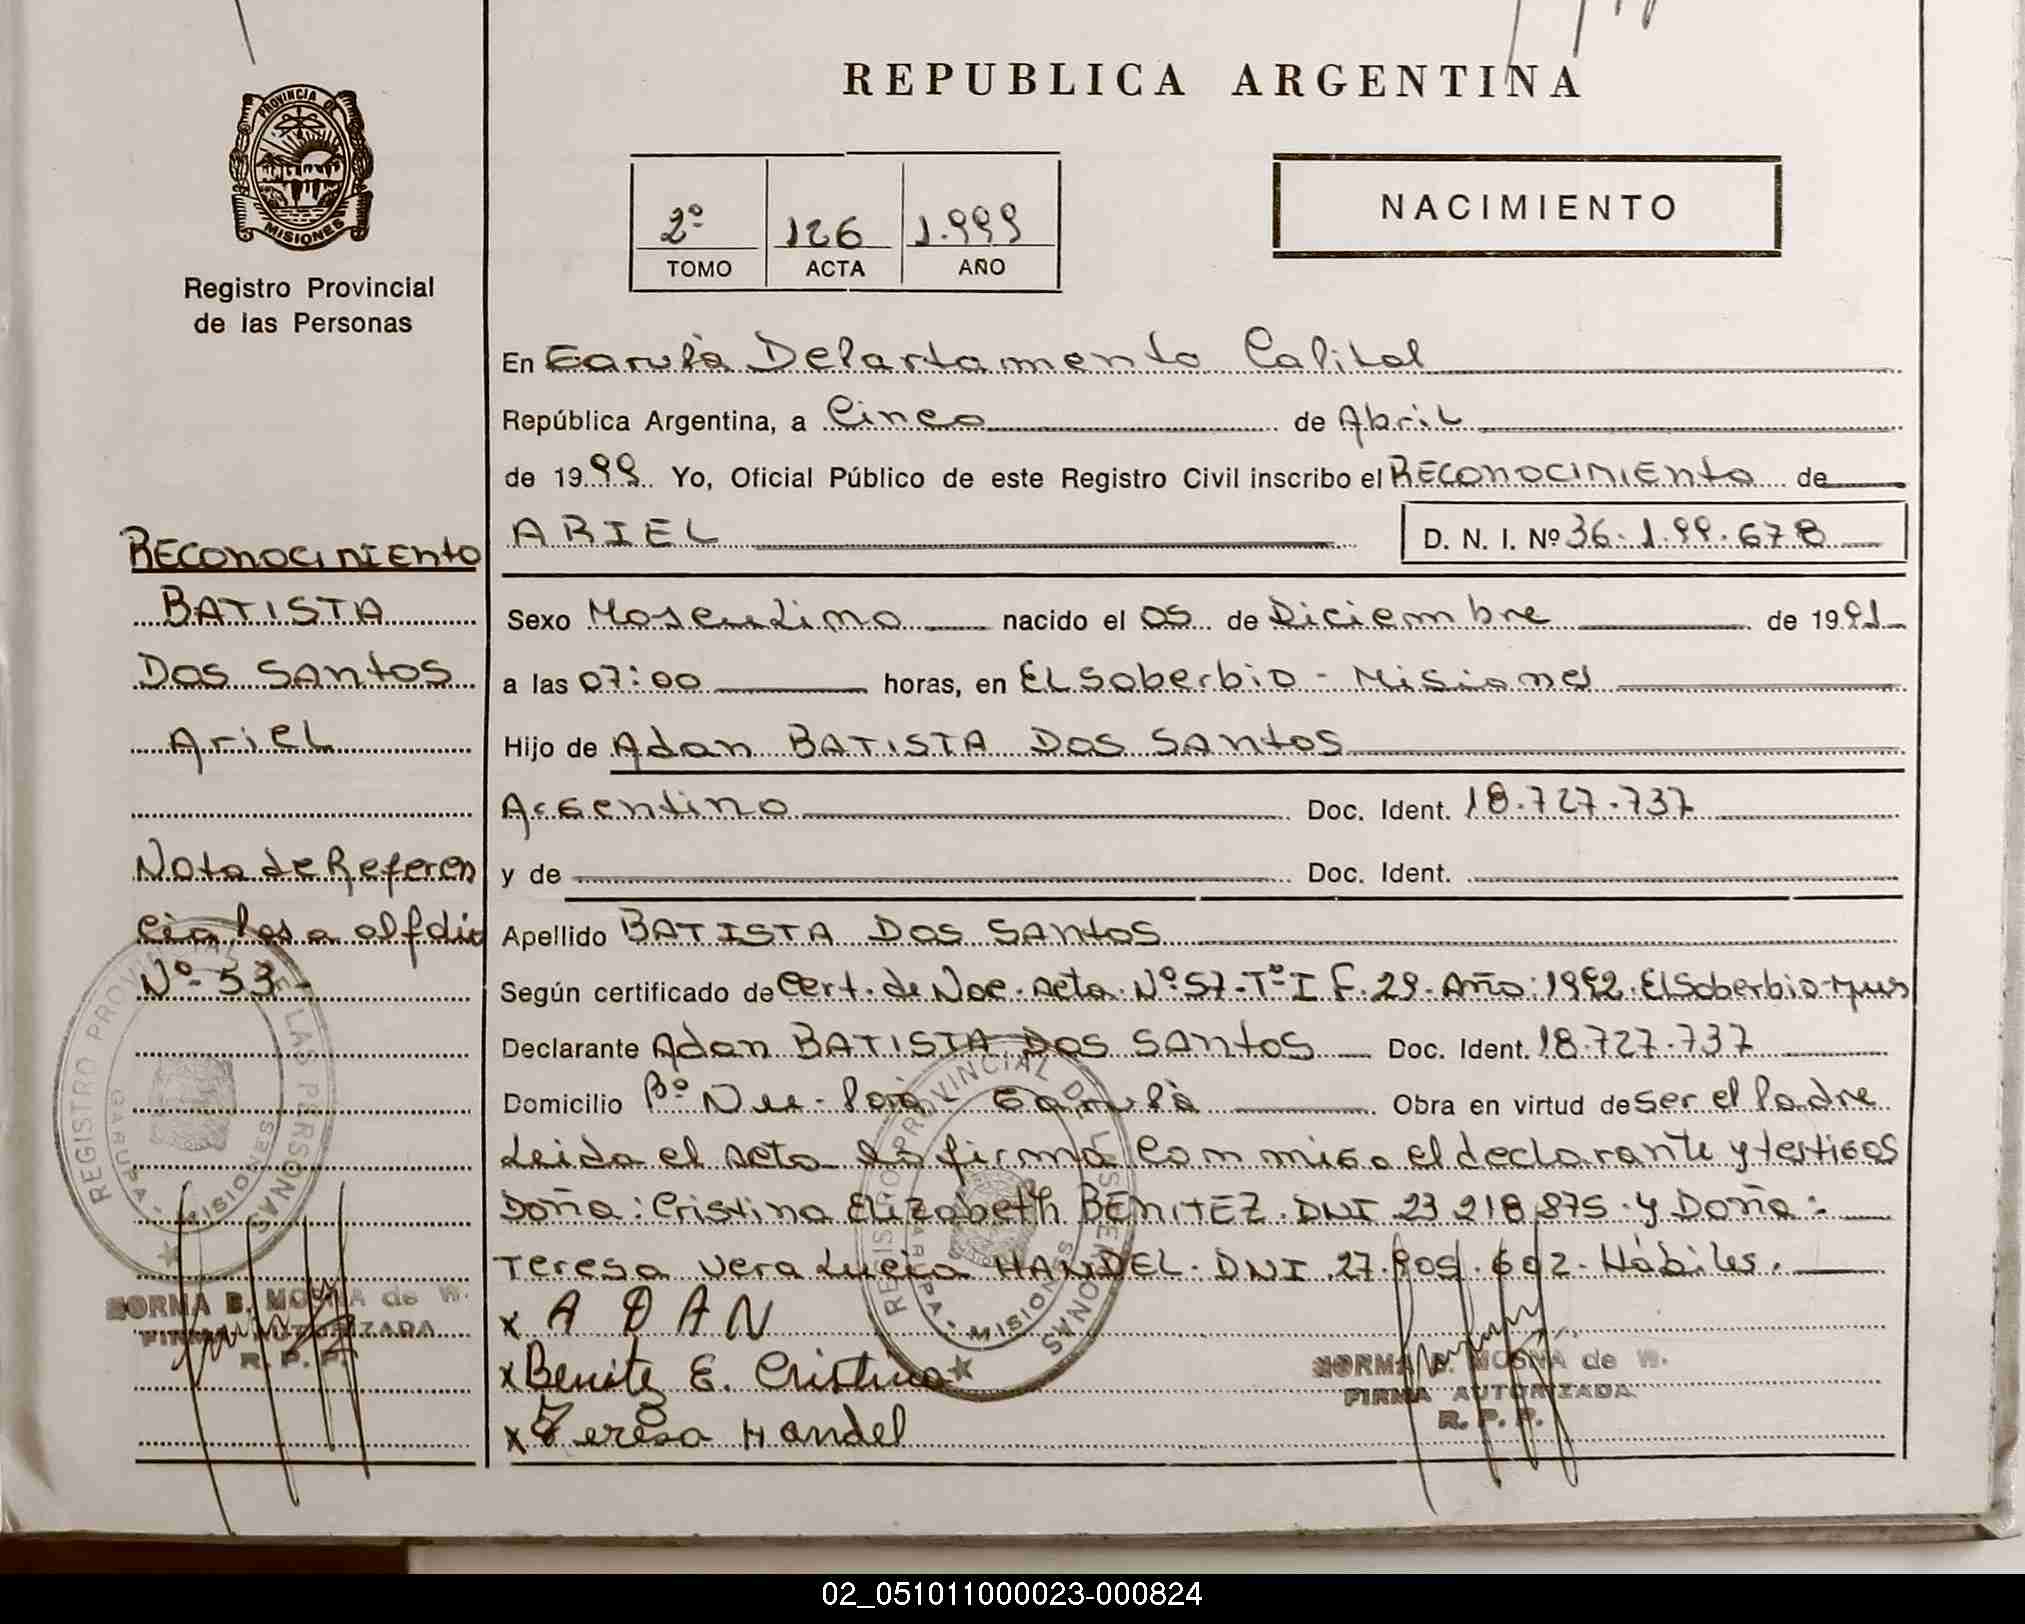 REPUBLICA ARGENTINA
PROVINCIA DE
MISIONES
Registro Provincial
de las Personas
2º 126 1.999
TOMO ACTA AÑO
NACIMIENTO
En Garupá Departamento Capital
República Argentina, a Cinco de Abril
de 1999 Yo, Oficial Público de este Registro Civil inscribo el RECONOCIMIENTO de
ARIEL D. N. I. Nº 36.199.678
Sexo Masculino nacido el 05 de Diciembre de 1991
a las 07:00 horas, en EL Soberbio - Misiones
Hijo de Adan BATISTA DOS SANTOS
Argentino Doc. Ident. 18.727.737
y de Doc. Ident.
Apellido BATISTA DOS SANTOS
Según certificado de Cert. de Nac. Acta Nº 57-Tº I F. 29. Año: 1992. El Soberbio-Mnes
Declarante Adan BATISTA DOS SANTOS Doc. Ident. 18.727.737
Domicilio Bº Ñu-Porá Garupá Obra en virtud de ser el Padre
Leida el Acta la firma conmigo el declarante y testigos
Doña: Cristina Elizabeth BENITEZ. DNI 23 218 875. y Doña:
Teresa Vera Lucia HANDEL. DNI 27.909.602. Hábiles.
x ADAN
x Benitez E. Cristina
x Teresa Handel
RECONOCIMIENTO
BATISTA
DOS SANTOS
Ariel
Nota de Referen
cia pasa al fdio
Nº- 53-
REGISTRO PROVINCIAL DE LAS PERSONAS
GARUPA - MISIONES
NORMA B. MOSNA de W.
FIRMA AUTORIZADA
R. P. P.
REGISTRO PROVINCIAL DE LAS PERSONAS
GARUPA - MISIONES
NORMA B. MOSNA de W.
FIRMA AUTORIZADA
R. P. P.
02_051011000023-000824